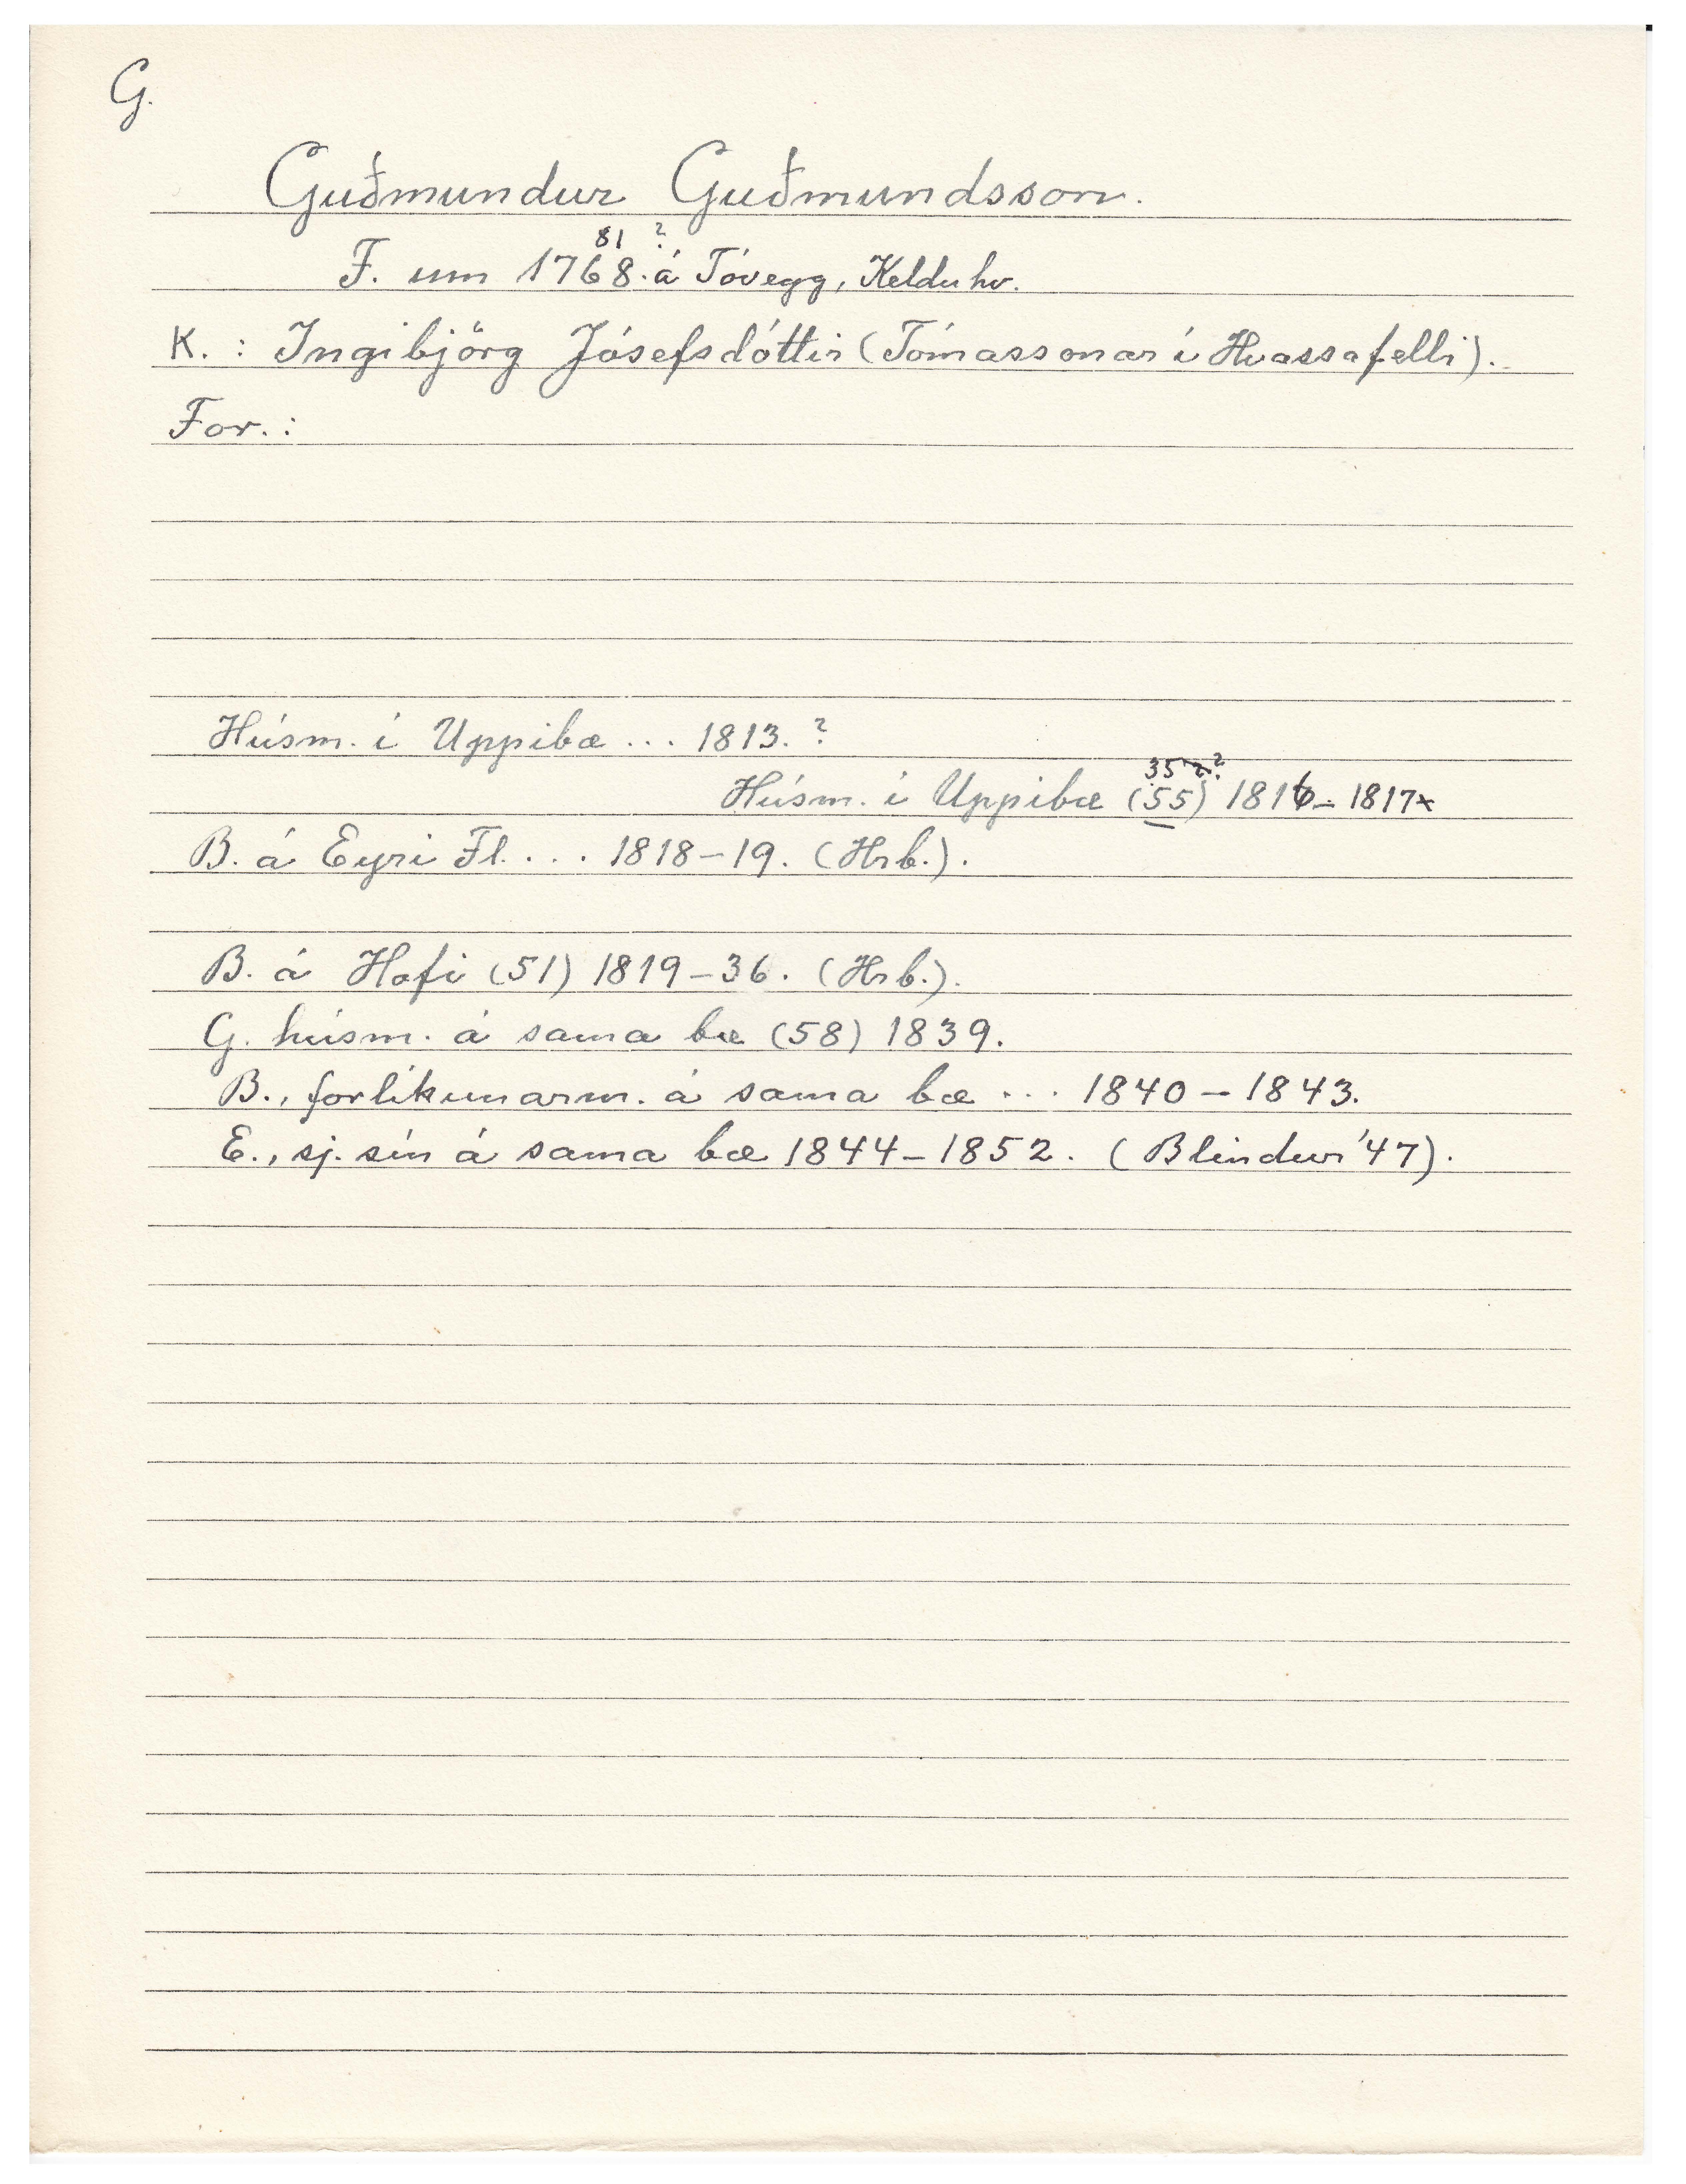 G.
Guðmundur Guðmundsson.
81 ?
F. um 1768. á Tóvegg, Kelduhv.
K. : Ingibjörg Jósefsdóttir (Tómassonar í Hvassafelli).
For. :
Húsm. í Uppibæ ... 1813. ?
35 2?
Húsm. í Uppibæ (55) 1816 - 1817x
B. á Eyri Fl. . . . 1818-19. (Hrb.).
B. á Hofi (51) 1819-36. (Hrb.).
G. húsm. á sama bæ (58) 1839.
B., forlíkunarm. á sama bæ ... 1840 - 1843.
E., sj. sín á sama bæ 1844-1852. (Blindur '47).